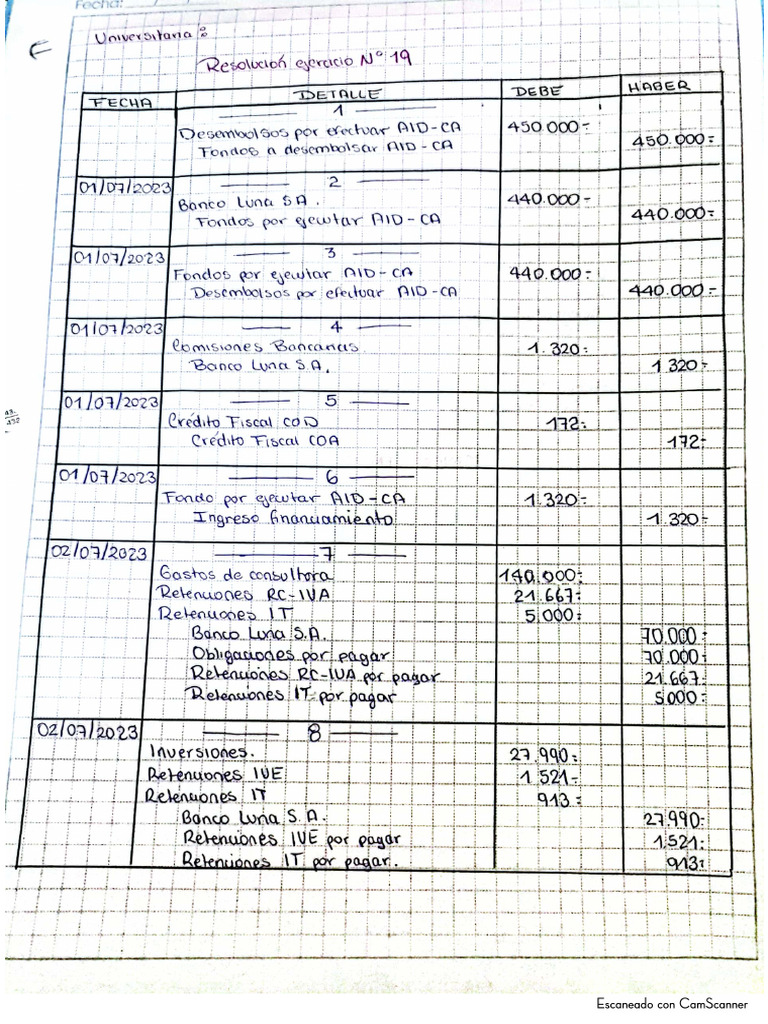 Fecha:
Universitaria:
Resolución ejercicio N° 19
FECHA DETALLE DEBE HABER
1
Desembolsos por efectuar AID-CA 450.000-
Fondos a desembolsar AID-CA 450.000-
01/07/2023 2
Banco Luna SA. 440.000-
Fondos por ejecutar AID-CA 440.000-
01/07/2023 3
Fondos por ejecutar AID-CA 440.000-
Desembolsos por efectuar AID-CA 440.000-
01/07/2023 4
Comisiones Bancarias. 1.320-
Banco Luna S.A. 1.320-
01/07/2023 5
Crédito Fiscal COD 172-
Crédito Fiscal COA 172-
01/07/2023 6
Fondo por ejecutar AID-CA 1.320-
Ingreso financiamiento 1.320-
02/07/2023 7
Gastos de consultora 140.000-
Retenciones RC-IVA 21.667-
Retenciones IT 5.000-
Banco Luna S.A. 70.000-
Obligaciones por pagar 70.000-
Retenciones RC-IVA por pagar 21.667-
Retenciones IT por pagar 5.000-
02/07/2023 8
Inversiones. 27.990-
Retenciones IUE 1.521-
Retenciones IT 913-
Banco Luna S.A. 27.990-
Retenciones IUE por pagar 1.521-
Retenciones IT por pagar. 913-
Escaneado con CamScanner